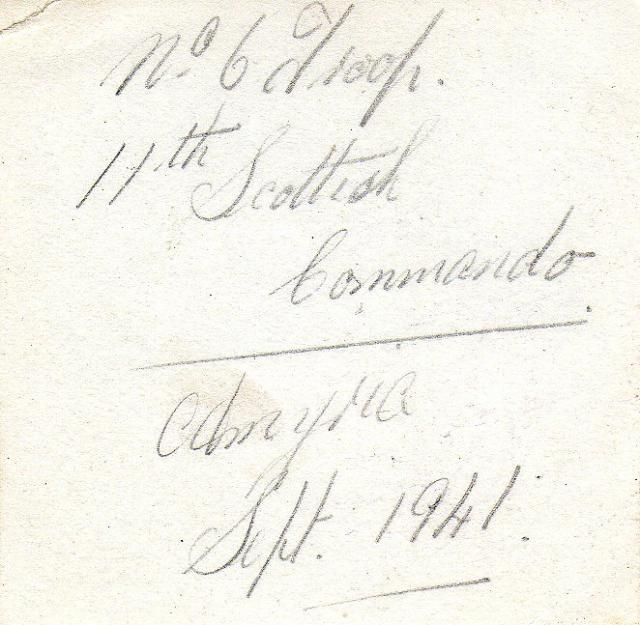 No 6 Troop.
11th Scottish
Commando.
Sept. 1941.